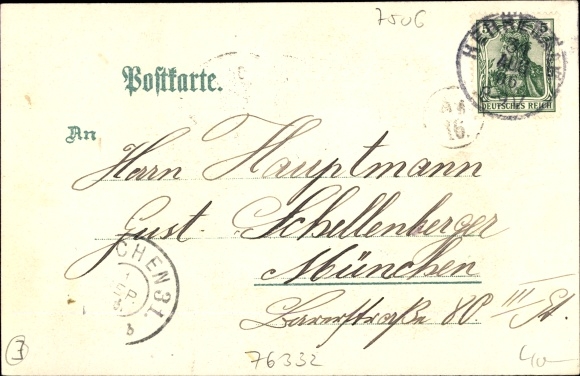 7506
Postkarte.
DEUTSCHES REICH
An
Herrn Hauptmann
Gust. Schellenberger
München
Barerstraße 80. III St.
CHEN 31.
76332